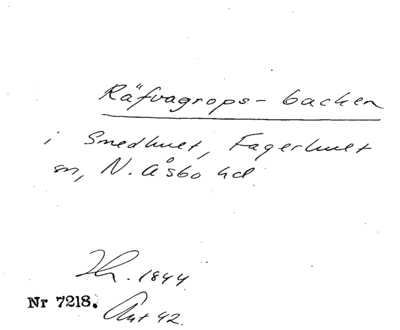 Räfvagrops-backen
i Smedhult, Fagerhult
sn, N. Åsbo hd
1844
Nr 7218. Ant 42.